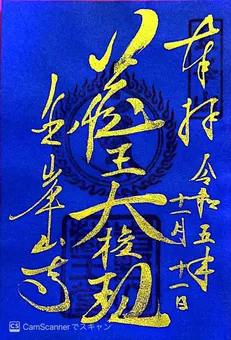 奉拝
令和五年
十一月十一日
蔵王大権現
金峯山寺
CS CamScanner でスキャン